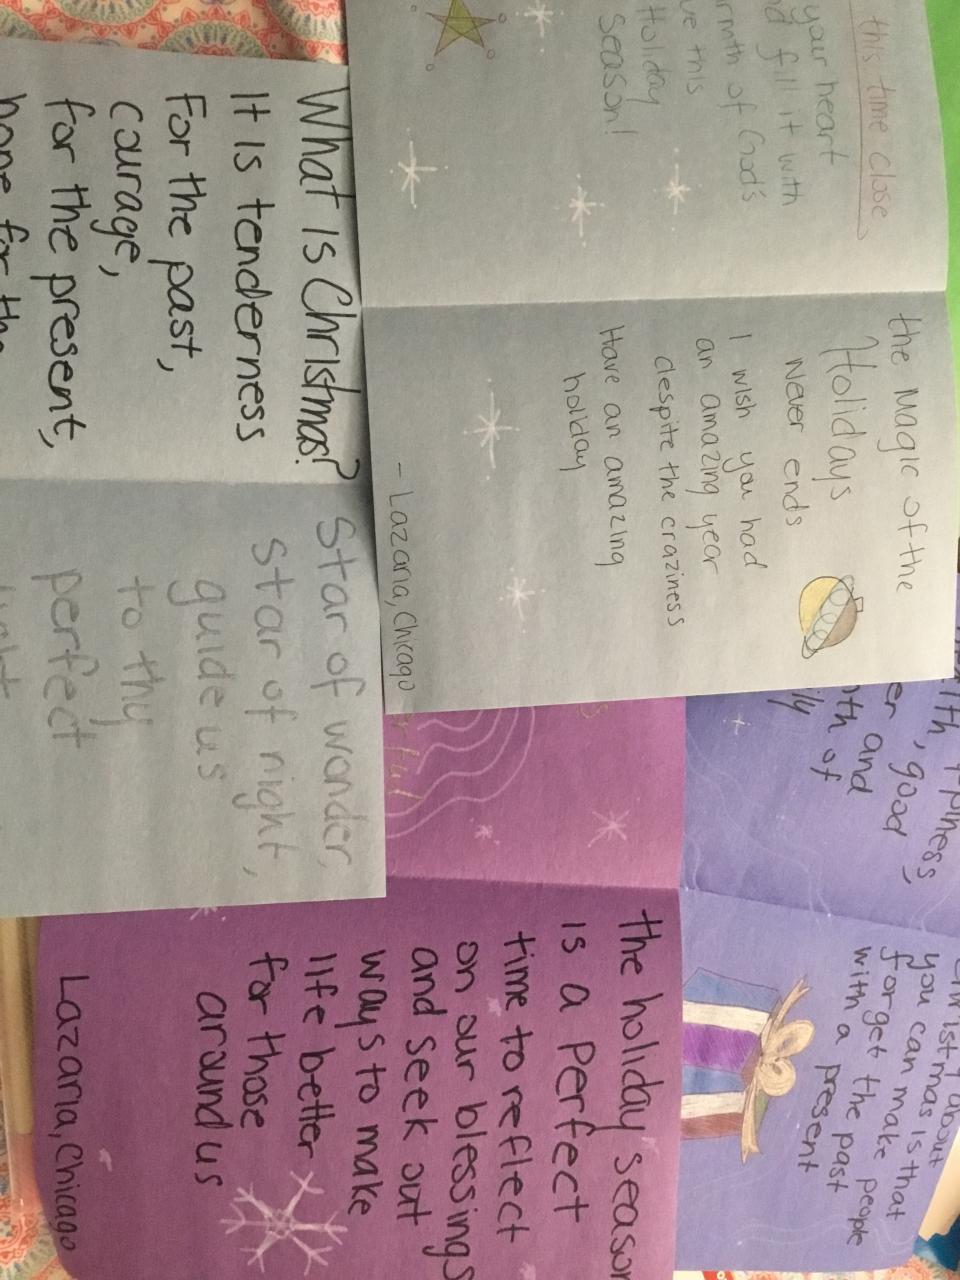 this time close
your heart
fill it with
of God's
this
Holiday
Season!
the Magic of the
Holidays
Never ends
I wish you had
an amazing year
despite the craziness
Have an amazing
holiday
- Lazaria, Chicago
What is Christmas?
It is tenderness
For the past,
courage,
for the present,
hope for the
Star of wonder,
star of night,
guide us
to thy
perfect
light
good
and
of
about
Christmas is that
you can make people
forget the past
with a present
the holiday season
is a perfect
time to reflect
on our blessings
and seek out
ways to make
life better
for those
around us
Lazaria, Chicago